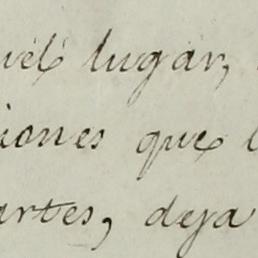 lugar,
iones que
artes, deja